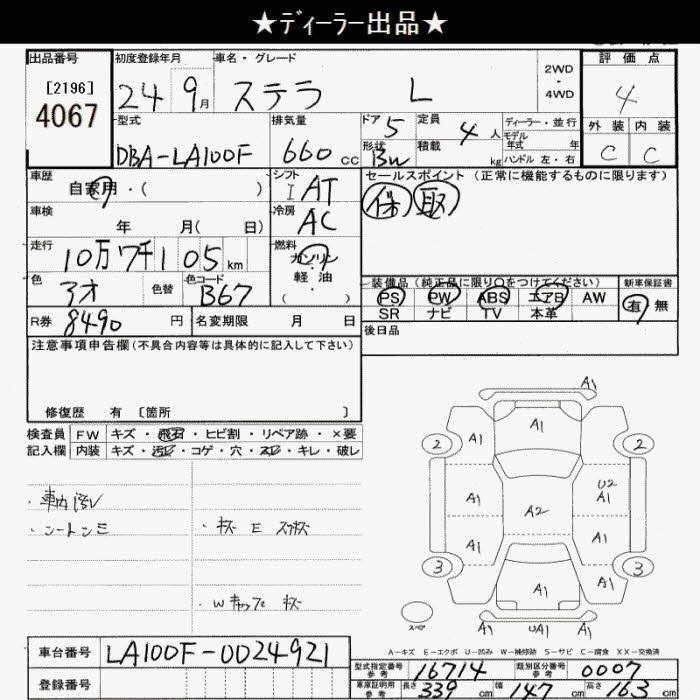 ★ディーラー出品★
出品番号 初度登録年月 車名・グレード 2WD・4WD 評価点
[2196]
4067
24年 9月 ステラ L 4
型式 排気量 ドア 5 定員 4人 ディーラー・並行 外装 内装
DBA-LA100F 660cc 形状 Bn 積載 kg モデル年式 年 C C
ハンドル 左・右
車歴 シフト セールスポイント (正常に機能するものに限ります)
自家用・( ) I AT 保 取
車検 冷房
年 月( 日) AC
走行 燃料
10万7千105km ガソリン
軽・油
・( )
色 色替 色コード 装備品 (純正品に限り○をつけてください) 新車保証書
アオ B67 PS PW ABS エアB AW 有 無
SR ナビ TV 本革
R券 8490円 名変期限 月 日 後日品
注意事項申告欄 (不具合内容等は具体的に記入して下さい)
修復歴 有 〔箇所 〕
検査員記入欄 FW キズ・飛石・ヒビ割・リペア跡・×要
内装 キズ・汚レ・コゲ・穴・スレ・キレ・破レ
・車内汚レ
・シートシミ
・キズ E スリキズ
・Wキャップ キズ
A1
A1
2 A1 A1 2
U2
A1 A2 A1
A1 A1
3 A1 A1 3
スペア UA1 A1
A-キズ E-エクボ U-凹み W-補修跡 S-サビ C-腐食 XX-交換済
車台番号 LA100F-0024921
登録番号
型式指定番号 参考 16714 類別区分番号 参考 0007
車庫証明用 参考 長さ 339cm 幅 147cm 高さ 163cm